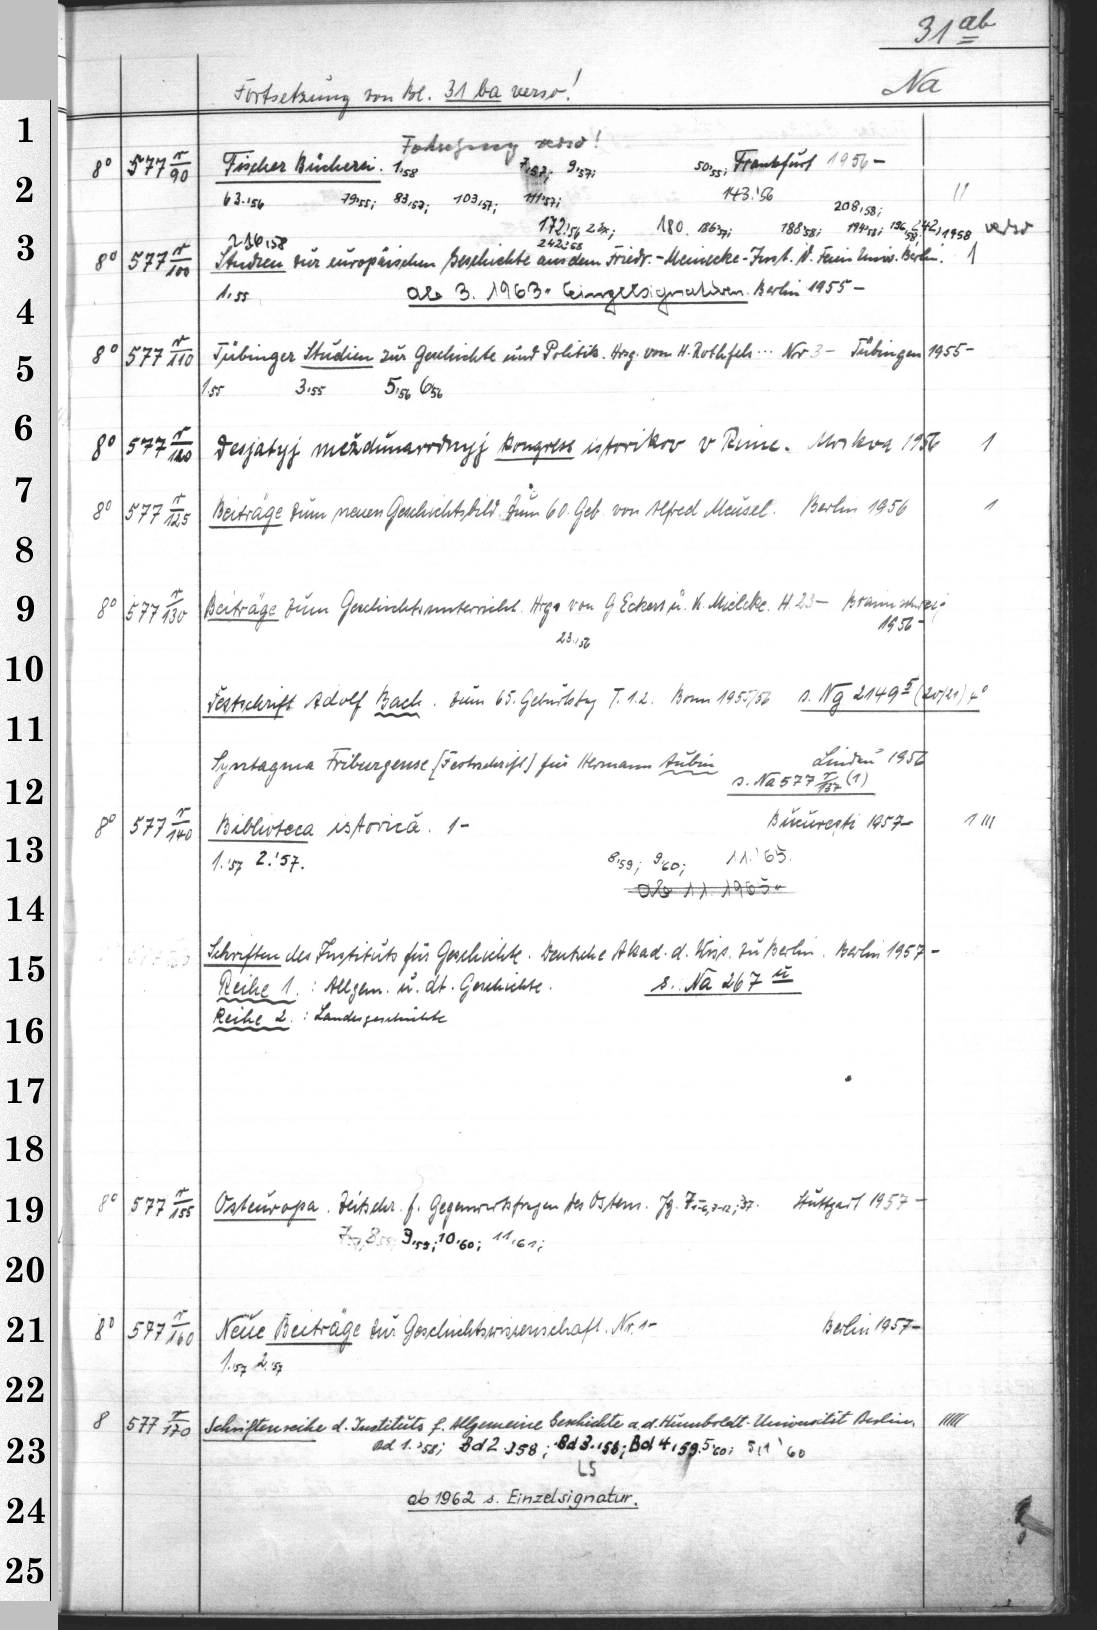 31 ab
Na
Fortsetzung von Bl. 31 ba verso!
1
Fortsetzung verso!
8° 577 r/90 Fischer Bücherei. 1,58 7,57; 9,57; 50,55; Frankfurt 1956-
2
63,56 79,55; 83,57; 103,57; 111,57; 143,'56 208,58; 11
172,56 180 186,57; 188,58; 194,58; 196,58; 242,1958 verso
3
216,58 242,58
8° 577 r/100 Studien zur europäischen Geschichte aus dem Friedr.-Meinecke-Inst. d. Freien Univ. Berlin. 1
1,55 ab 3. 1963. Einzelsignaturen. Berlin 1955-
4
8° 577 r/110 Tübinger Studien zur Geschichte und Politik. Hrsg. von H. Rothfels ... Nr 3- Tübingen 1955-
5
1,55 3,55 5,56 6,56
6
8° 577 r/120 Desjatyj meždunarodnyj kongress istorikov v Rime. Moskva 1956 1
7
8° 577 r/125 Beiträge zum neuen Geschichtsbild. Zum 60. Geb. von Alfred Meusel. Berlin 1956 1
8
9
8° 577 r/130 Beiträge zum Geschichtsunterricht. Hrsg. von G Eckert u. K. Mielcke. H. 23- Braunschweig
1956-
23,56
10
Festschrift Adolf Bach. Zum 65. Geburtstag T. 1.2. Bonn 1955/56 s. Ng 2149 5 (20/21) 4°
11
Syntagma Friburgense [Festschrift] für Hermann Aubin Lindau 1956
12
s. Na 577 r/137 (1)
8° 577 r/140 Biblioteca istorică. 1- Bucureşti 1957- 1 III
13
1.'57 2.'57. 8,59; 9,60; 11.'65.
14
ab 11. 1965.
15
Schriften des Instituts für Geschichte. Deutsche Akad. d. Wiss. zu Berlin. Berlin 1957-
Reihe 1.: Allgem. u. dt. Geschichte. s. Na 267 u
16
Reihe 2.: Landesgeschichte
17
18
19
8° 577 r/155 Osteuropa. Zeitschr. f. Gegenwartsfragen des Ostens. Jg. 7 1-6,7-12,'57. Stuttgart 1957-
9,59; 10,60; 11,61;
20
21
8° 577 r/160 Neue Beiträge zur Geschichtswissenschaft. Nr. 1- Berlin 1957-
22
1,57 2,57
8 577 r/170 Schriftenreihe d. Instituts f. Allgemeine Geschichte a. d. Humboldt-Universität Berlin. IIIII
23
Bd 1.,58; Bd 2,58; Bd 3.,58; Bd 4,59. 5'60; 5,1'60
LS
24
ab 1962 s. Einzelsignatur.
25